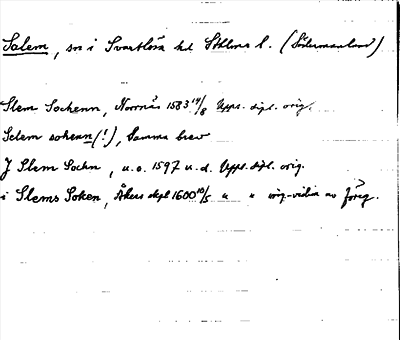 Salem, sn i Svartlösa hd Sthlms l. (Södermanland)
Slem Sochenn, Norrnäs 1583 14/8 Uppl. dipl. orig.
Selem sohenn (!), Samma brev
J Slem Sochn, u.o. 1597 u.d. Uppl. dipl. orig.
i Slems Soken, Åkers dipl 1600 10/5 " " orig.-vidim av föreg.